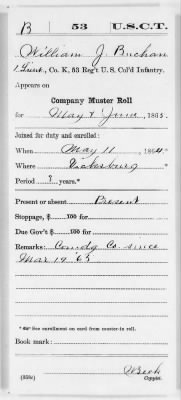 B 53 U.S.C.T.
William J. Buchan
1 Lieut, Co. K, 53 Reg't U. S. Col'd Infantry.
Appears on
Company Muster Roll
for May & June, 1865.
Joined for duty and enrolled:
When May 11, 1864*
Where Vicksburg *
Period 3 years.*
Present or absent Present
Stoppage, $ 100 for
Due Gov't $ 100 for
Remarks: Comdg Co. since
Mar 14 '65
* See enrollment on card from muster-in roll.
Book mark:
(858c) Copyist.